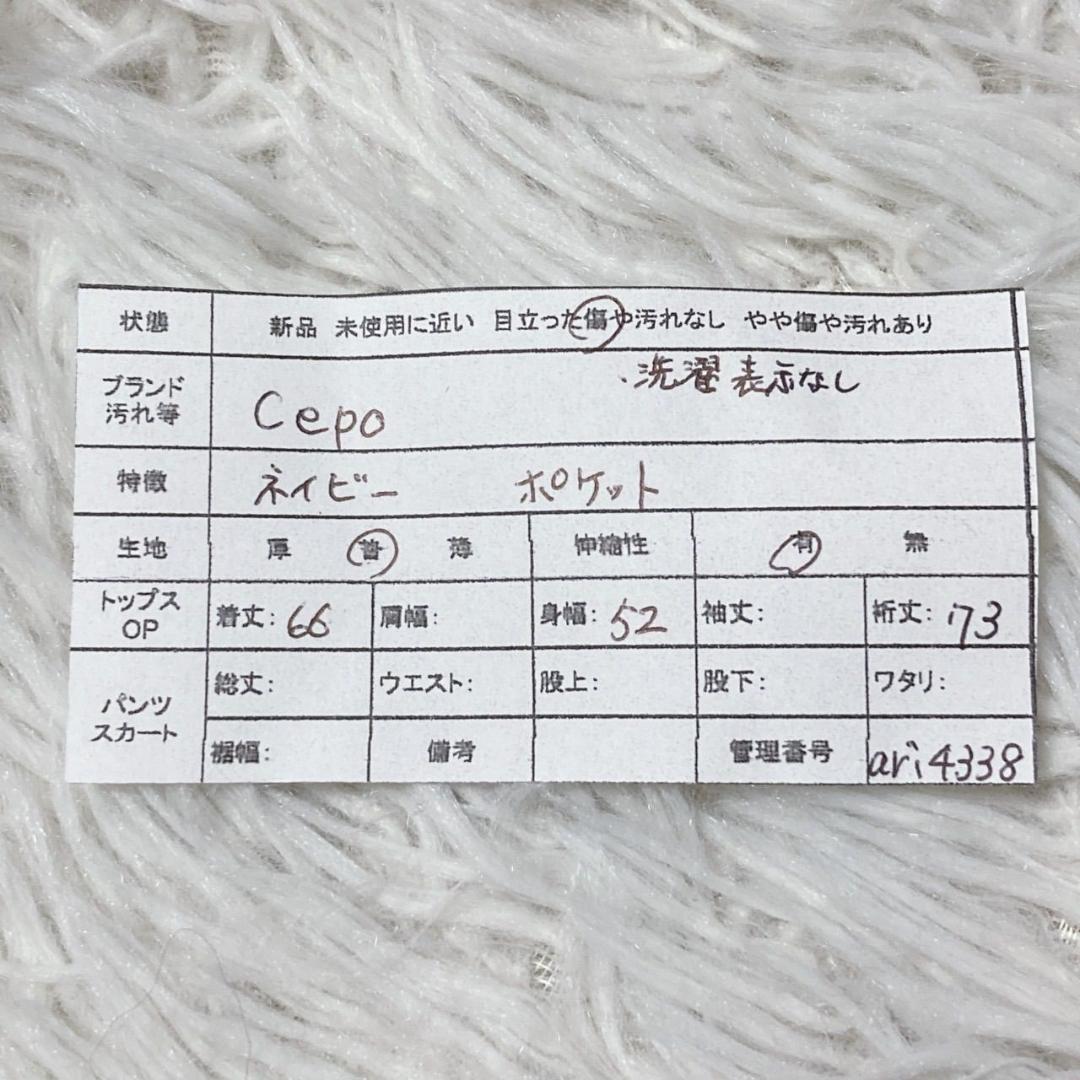 状態 新品 未使用に近い 目立った傷や汚れなし やや傷や汚れあり
ブランド
汚れ等
・洗濯表示なし
Cepo
特徴 ネイビー ポケット
生地 厚 普 薄 伸縮性 有 無
トップス
OP
着丈: 66 肩幅: 身幅: 52 袖丈: 裄丈: 73
パンツ
スカート
総丈: ウエスト: 股上: 股下: ワタリ:
裾幅: 備考 管理番号 ari4338